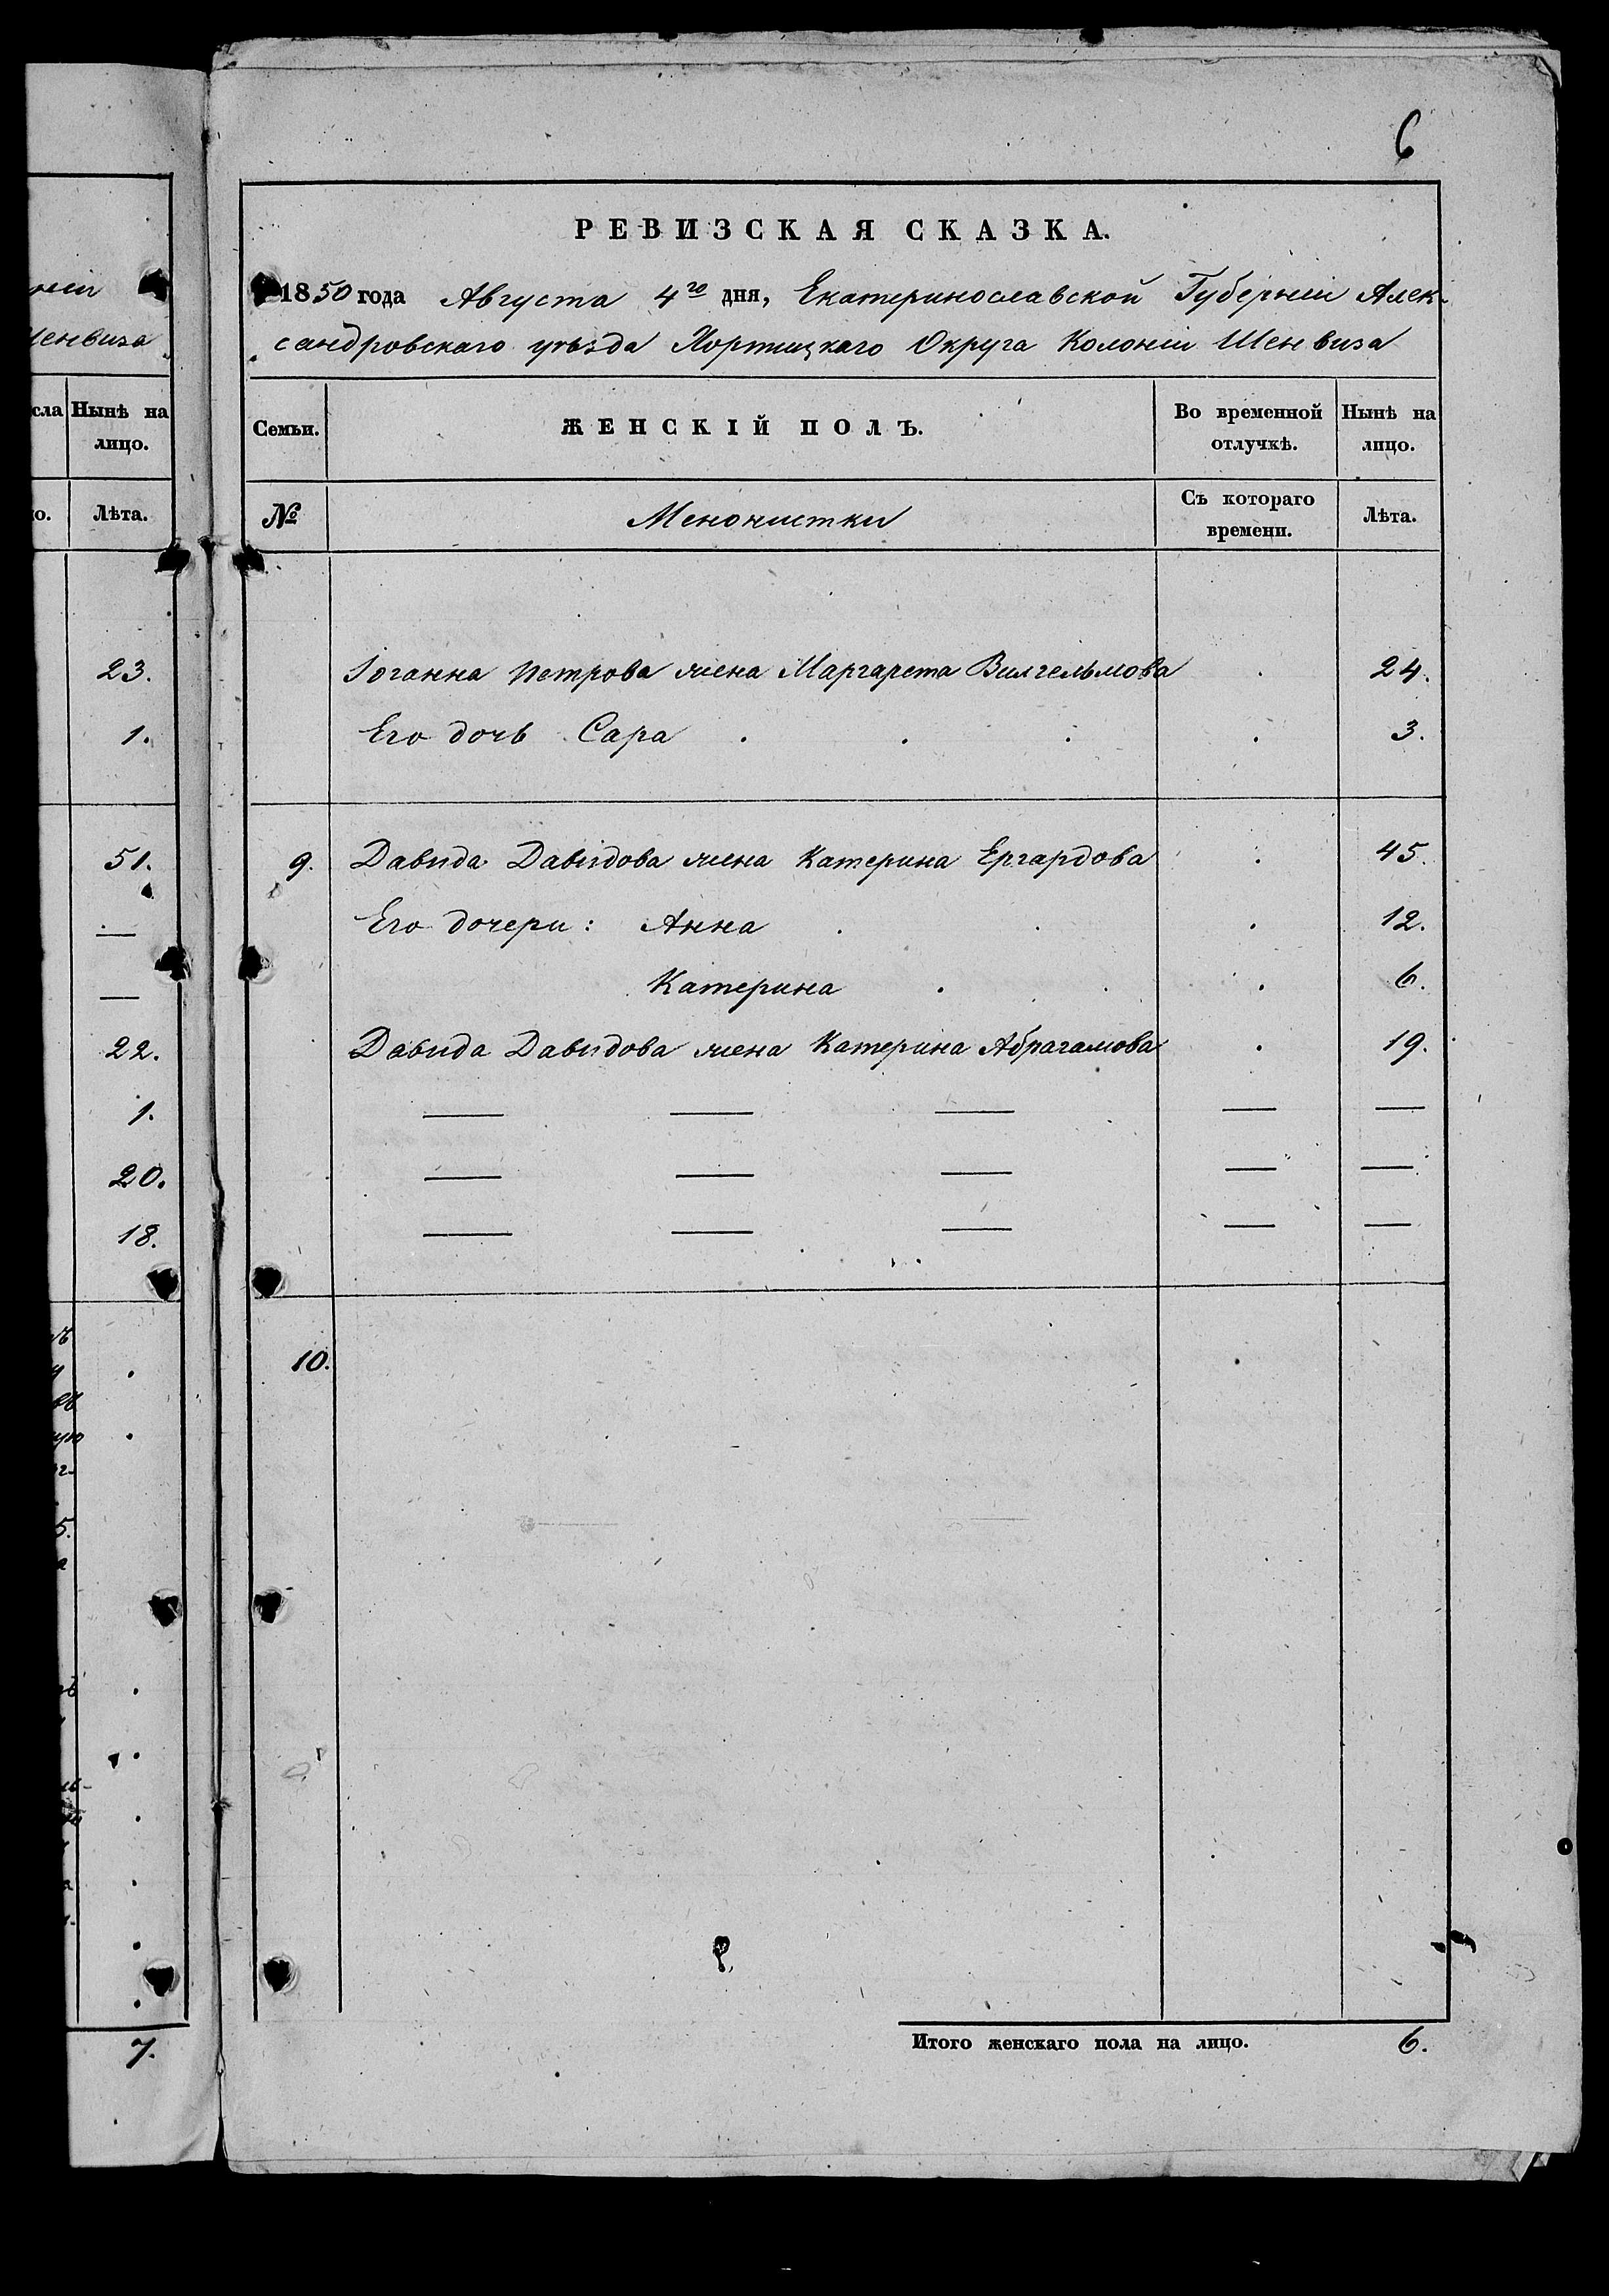 ніи
Шенвиза
сла Нынѣ на
лицо.
Лѣта.
23.
1.
51.
—
—
22.
1.
20.
18.
7.
6
РЕВИЗСКАЯ СКАЗКА.
1850 года Августа 4го дня, Екатеринославской Губерніи Алек-
сандровскаго уѣзда Хортицкаго Округа Колоніи Шенвиза
Семьи. ЖЕНСКІЙ ПОЛЪ. Во временной отлучкѣ. Нынѣ на лицо.
№ Менонистки Съ котораго времени. Лѣта.
Іоганна Петрова жена Маргарета Вилгельмова . 24.
Его дочь Сара . . . . 3.
9. Давида Давидова жена Катерина Ергардова . 45.
Его дочери: Анна . . . 12.
Катерина . . . 6.
Давида Давидова жена Катерина Абрагамова . 19.
— — — — —
— — — — —
— — — — —
10.
Итого женскаго пола на лицо. 6.